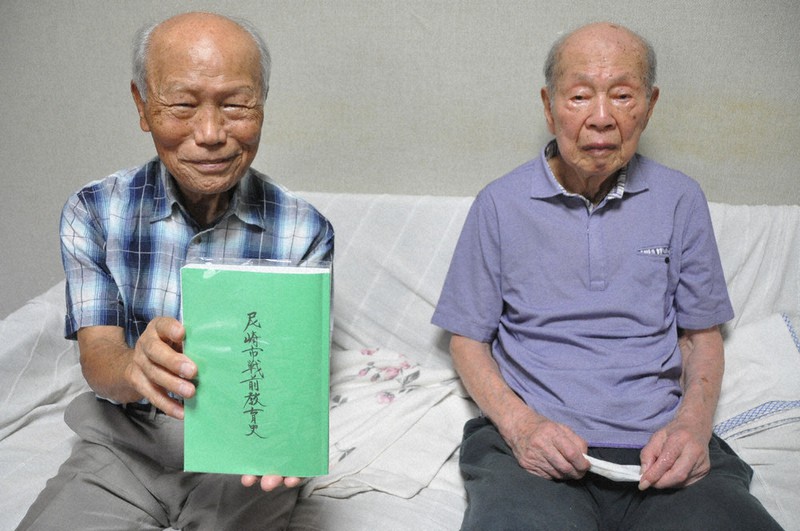 尼崎市戦前教育史